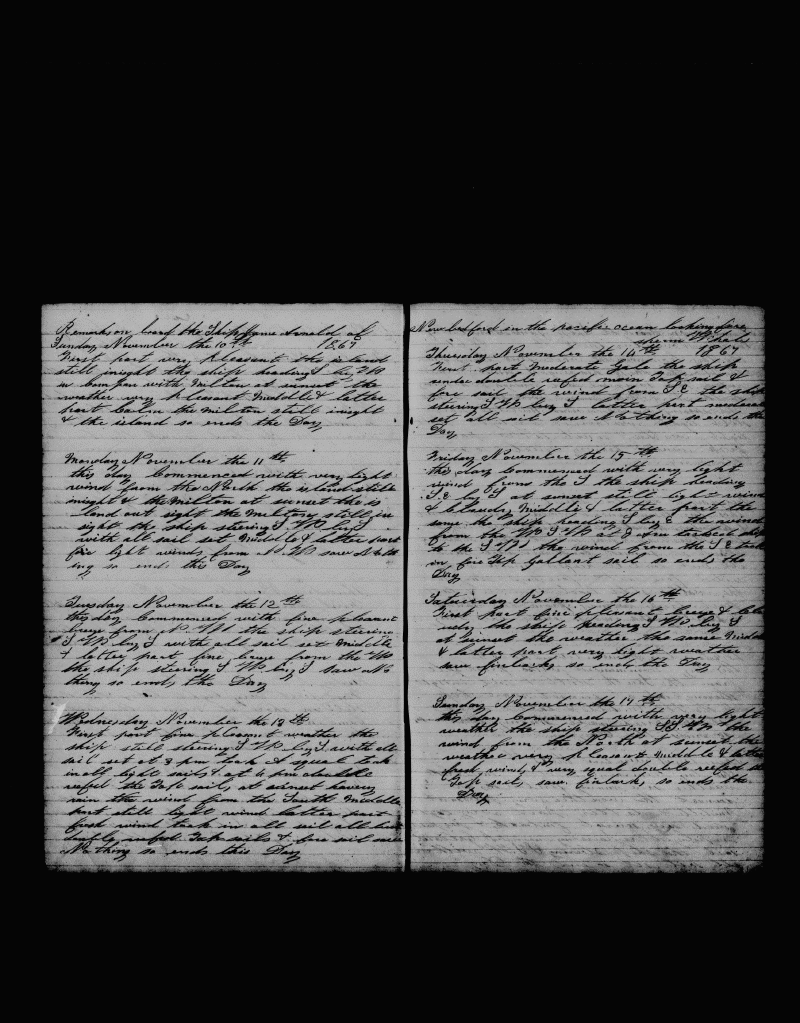 Remarks on board the Ship James Arnold of
Sunday November the 10th 1867
First part very pleasant the island
still insight the ship heading S by
in company with Milton at sunset the
weather very pleasant Middle & latter
part the Milton still insight
& the island so ends the Day
Monday November the 11th
this day Commenced with very light
wind from the North the island still
insight & the Milton at sunset the is
land out sight the Milton still in
sight the ship stering S W by S
with all sail set Middle & latter part
light winds from saw Noth
ing so ends this Day
Tuesday November the 12th
this day Commenced with fine pleasant
breze from the ship stering
S W by S with all sail set Middle
& latter part fine breze from the
the ship stering S W by S saw No
thing so ends the Day
Wednesday November the 13th
First part fine pleasant weather the
ship still stering S W by S with all
sail set at 3 pm took A squal took
in all light sails & at 4 pm double
refed the Top sails at sunset having
rain the wind from the South Middle
part still light wind latter part
fresh wind took in all sail
double refed Top sails & fore sail saw
Nothing so ends this Day
New bedford in the pacific ocean looking fore
sperm Whales
Thursday November the 14th 1867
First part Moderate Gale the ship
under double refed main Top sail &
fore sail the wind from S E the ship
stering S W by S latter part moderate
set all sail saw Nothing so ends the
Day
Friday November the 15th
this day Commenced with very light
wind from the S the ship heading
S E by S at sunset still light wind
& cloudy Middle & latter part the
same the ship heading S by E the wind
from the W S W at 8 tacked ship
to the the wind from the S E took
in fore top Gallant sail so ends the
Day
Saturday November the 16th
First part fine pleasant breze &
the ship heading S W by S
at sunset the weather the same Middle
& latter part very light weather
saw finbacks so ends the Day
Sunday November the 17th
this day Commenced with very light
weather the ship stering the
wind from the North at sunset the
weather very pleasant Middle & latter
fresh wind & very squal double reefed the
Top sails saw finbacks so ends the
Day